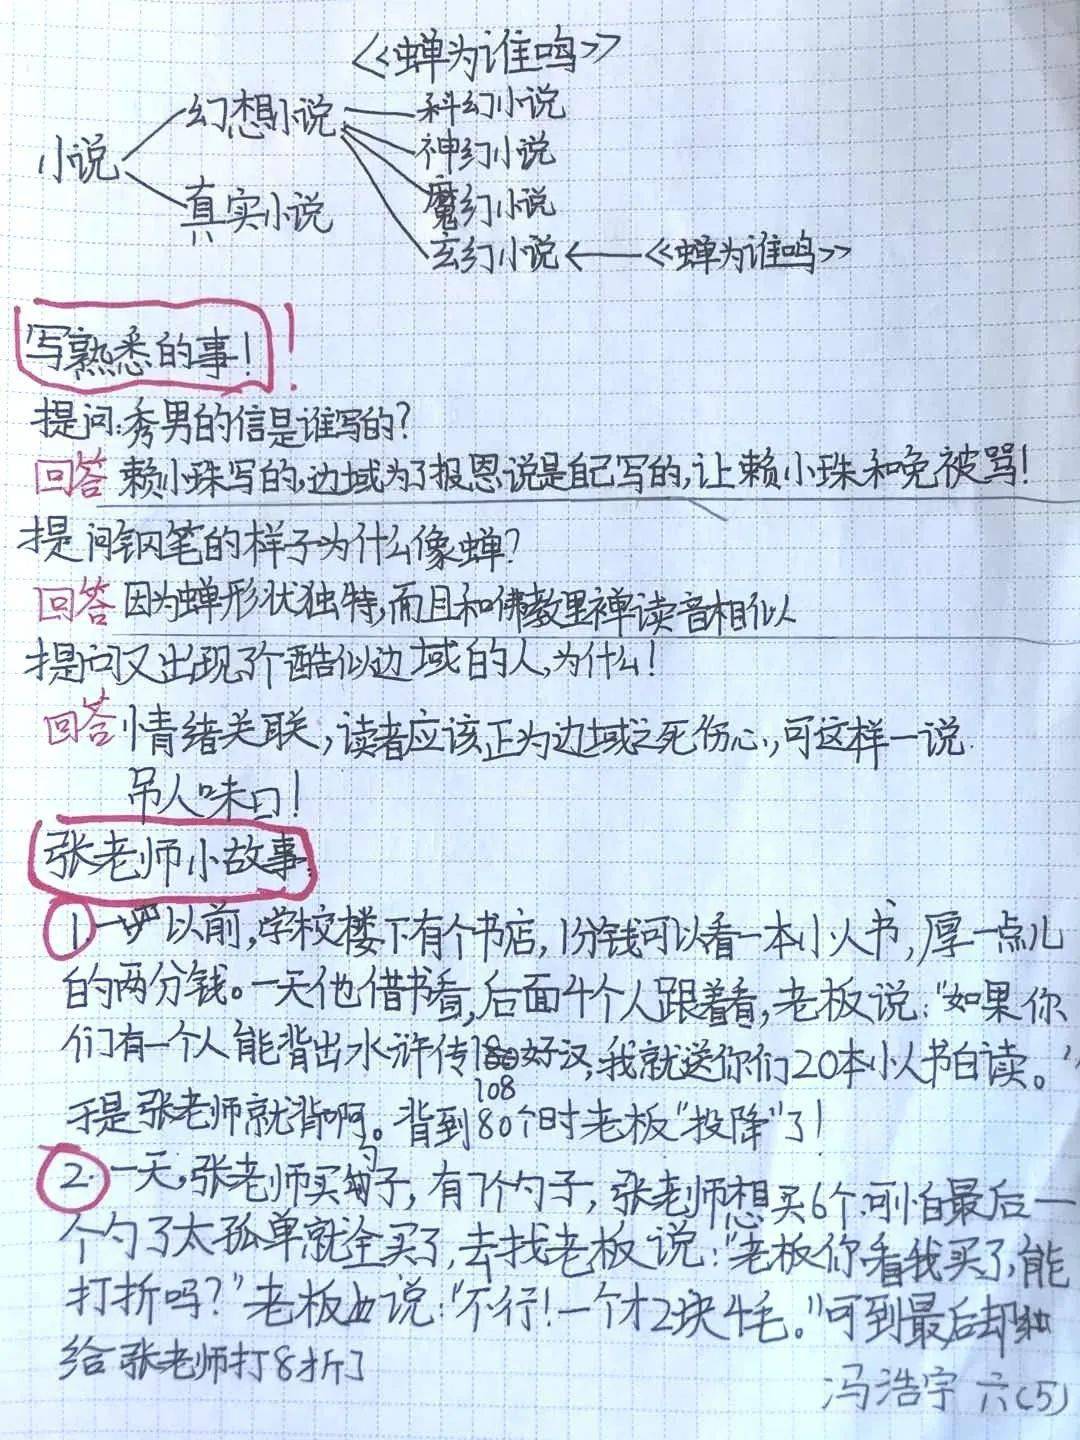 《蝉为谁鸣》
小说
幻想小说
科幻小说
神幻小说
魔幻小说
真实小说
玄幻小说 ← 《蝉为谁鸣》
写熟悉的事! !
提问:秀男的信是谁写的?
回答 赖小珠写的,边域为了报恩说是自己写的,让赖小珠和免被骂!
提问钢笔的样子为什么像蝉?
回答 因为蝉形状独特,而且和佛教里禅读音相似
提问又出现了个酷似边域的人,为什么!
回答 情绪关联,读者应该正为边域之死伤心,可这样一说
吊人味口!
张老师小故事:
1. 以前,学校楼下有个书店,1分钱可以看一本小人书,厚一点儿
的两分钱。一天他借书看,后面4个人跟着看,老板说:"如果你
们有一个人能背出水浒传108好汉,我就送你们20本小人书白读。"
于是张老师就背啊。背到80个时老板"投降"了!
2. 一天,张老师买勺子,有7个勺子,张老师想买6个.可怕最后一
个勺了太孤单就全买了,去找老板说:"老板你看我买了,能
打折吗?"老板说:"不行!一个才2块4毛。"可到最后却
给张老师打8折了
冯浩宇 六(5)